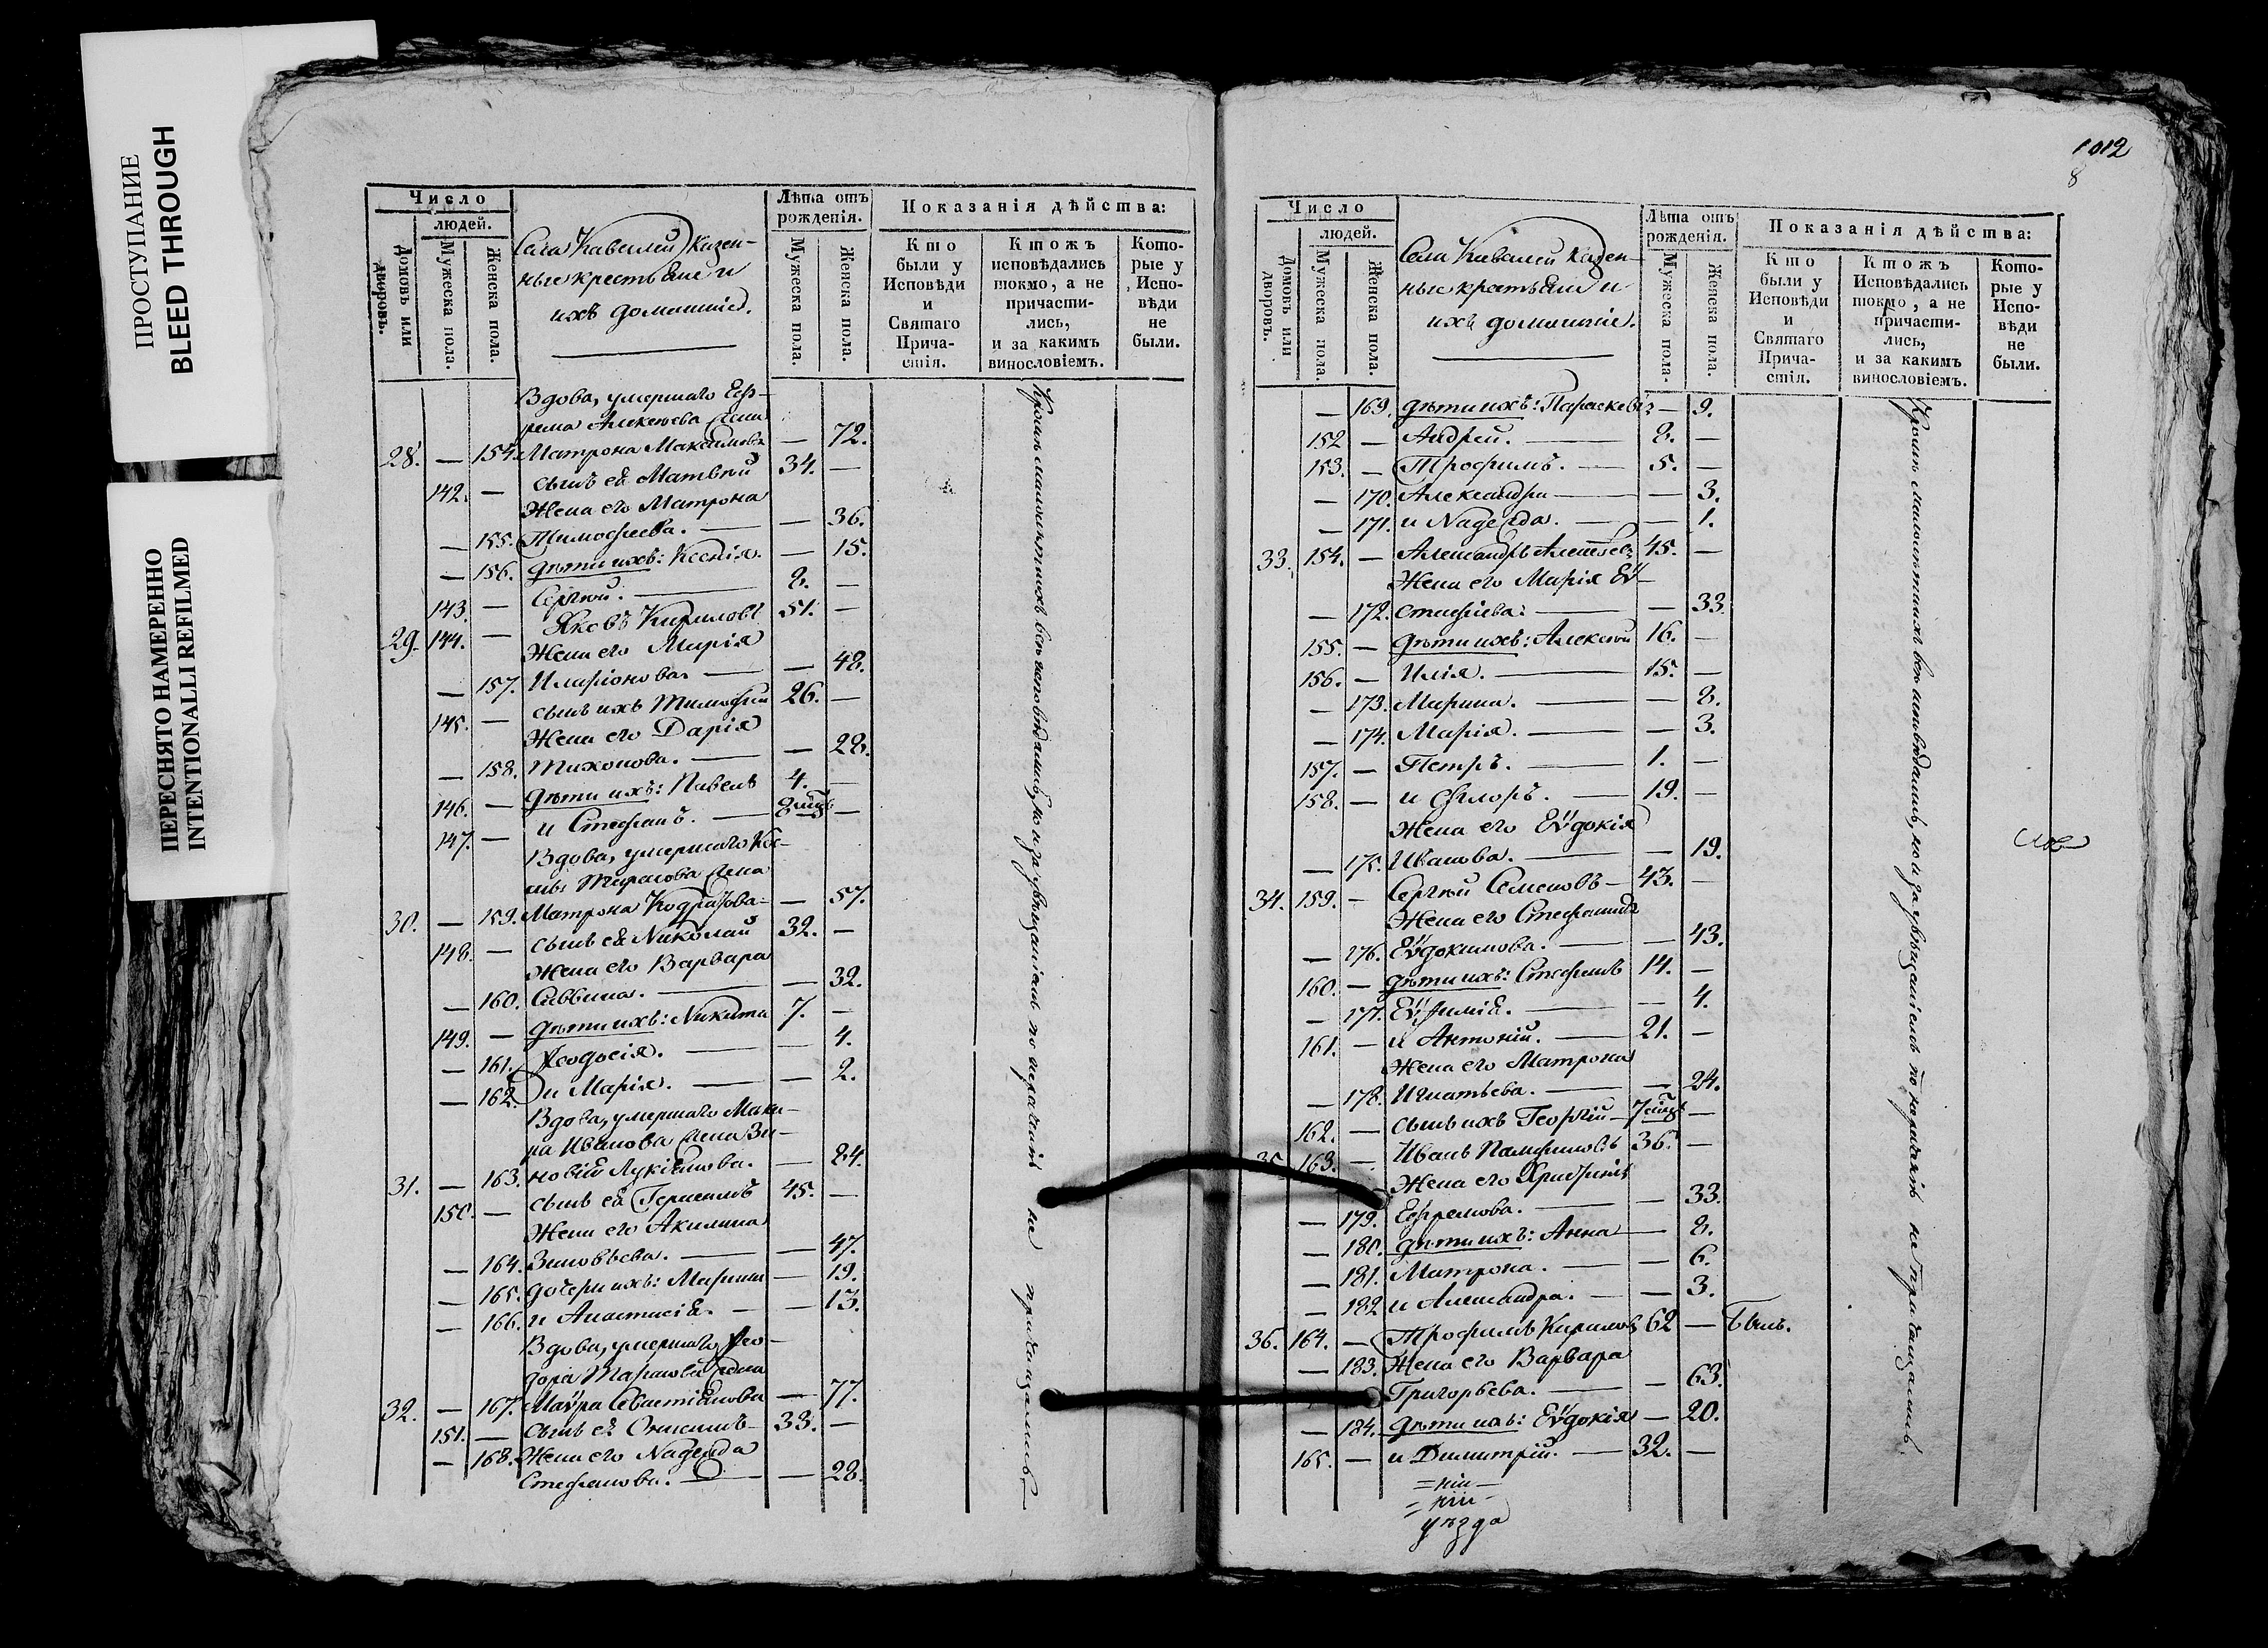 ПРОСТУПАНИЕ
BLEED THROUGH
ПЕРЕСНЯТО НАМЕРЕННО
INTENTIONALLI REFILMED
Число
людей.
Домовъ или дворовъ.
Мужеска пола.
Женска пола.
Села Кивилей казен-
ные крестьяне и
ихъ домашніе.
Лѣта отъ рожденія.
Мужеска пола.
Женска пола.
Показанія дѣйства:
Кто были у Исповѣди и Святаго Причастія.
Ктожъ исповѣдались токмо, а не причасти-лись, и за какимъ винословіемъ.
Кото-рые у Испо-вѣди не были.
Вдова, умершаго Еф-
рема Алексѣева жена
28. — 154. Матрона Максимова — 72.
142. — сынъ ея Матвѣй 34. —
Жена его Матрона
— 155. Тимофеева. — — 36.
— 156. дѣти ихъ: Ксенія. — 15.
143. — Сергѣй. — 8. —
29. 144. — Яковъ Кириловъ 51. —
Жена его Марія
— 157. Иларіонова. — — 48.
145. — сынъ ихъ Тимофей 26. —
Жена его Дарія
— 158. Тихонова. — — 28.
146. — дѣти ихъ: Павелъ 4. —
147. — и Стефанъ. — 8 мцъ —
Вдова, умершаго Кос-
мы Тарасова жена
30. — 159. Матрона Кодратова — — 57.
148. — сынъ ея Николай 32. —
Жена его Варвара
— 160. Саввина. — — 32.
149. — дѣти ихъ: Никита 7. —
— 161. Ѳеодосія. — — 4.
— 162. и Марія. — — 2.
Вдова, умершаго Мака-
ра Иванова жена Зи-
31. — 163. новія Лукіянова. — 84.
150. — сынъ ея Германъ 45. —
Жена его Акилина
— 164. Зиновьева. — — 47.
— 165. дочери ихъ: Марина — 19.
— 166. и Анастасія. — — 13.
Вдова, умершаго Ѳео-
дора Тарасова жена
32. — 167. Маѵра Севастіянова — 77.
151. — сынъ ея Онисимъ — 33. —
— 168. Жена его Надежда
Стефанова. — — 28.
Кромѣ малолѣтнихъ всѣ исповѣдались, но и за увѣщаніемъ по нерадѣнію не причащались.
1012
8
Число
людей.
Домовъ или дворовъ.
Мужеска пола.
Женска пола.
Села Кивилей казен-
ные крестьяне и
ихъ домашніе.
Лѣта отъ рожденія.
Мужеска пола.
Женска пола.
Показанія дѣйства:
Кто были у Исповѣди и Святаго Прича-стія.
Ктожъ Исповѣдались токмо, а не причасти-лись, и за какимъ винословіемъ.
Кото-рые у Испо-вѣди не были.
— 169. дѣти ихъ: Параскева — 9.
152 — Андрей. — 8. —
153. — Трофимъ. — 5. —
— 170. Александра — — 3.
— 171. и Надежда. — — 1.
33. 154. — Александръ 45. —
Жена его Марія Еѵ-
— 172. стафіева. — — 33.
155. — дѣти ихъ: Алексѣй 16. —
156. — Илія. — 15. —
— 173. Марина. — — 8.
— 174. Марія. — — 3.
157. — Петръ. — 1. —
158. — и Флоръ. — 19. —
Жена его Еѵдокія
— 175. Иванова. — — 19.
34. 159. — Сергѣй Семеновъ — 43. —
Жена его Стефанида
— 176. Еѵдокимова. — — 43.
160. — дѣти ихъ: Стефанъ 14. —
— 177. Еѵфимія. — — 4.
161. — и Антоній. — 21. —
Жена его Матрона
— 178. Игнатьева. — — 24.
162. — сынъ ихъ Георгій — 7 мцъ —
35. 163. — Иванъ Памфиловъ 36. —
Жена его
— 179. Ефремова. — — 33.
— 180. дѣти ихъ: Анна — 8.
— 181. Матрона. — — 6.
— 182 и Александра. — — 3.
36. 164. — Трофимъ Кириловъ 62 — Былъ.
— 183. Жена его Варвара
Григорьева. — — 63.
— 184. дѣти ихъ: Еѵдокія — 20.
165. — и Димитрій. — 32. —
уѣзда
Кромѣ малолѣтнихъ всѣ исповѣдались, но и за увѣщаніемъ по нерадѣнію не причащались.